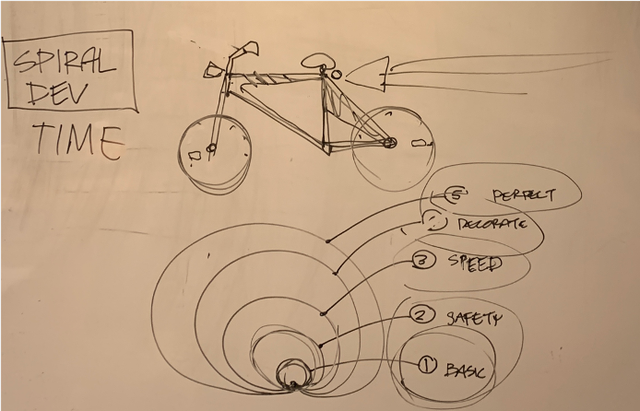 SPIRAL
DEV
TIME
5 PERFECT
4 DECORATE
3 SPEED
2 SAFETY
1 BASIC